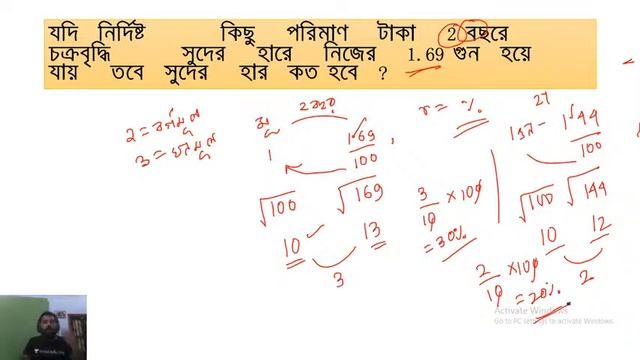 যদি নির্দিষ্ট কিছু পরিমাণ টাকা 2 বছরে
চক্রবৃদ্ধি সুদের হারে নিজের 1.69 গুন হয়ে
যায় তবে সুদের হার কত হবে ?
2 = বর্গমূল
3 = ঘনমূল
মূ 2 বছর
1 1.69
100
√100 √169
10 13
3
r = %
3/10 × 100
= 30%
1.44
100
√100 √144
10 12
2
2/10 × 100
= 20%
Activate Windows
Go to PC settings to activate Windows.